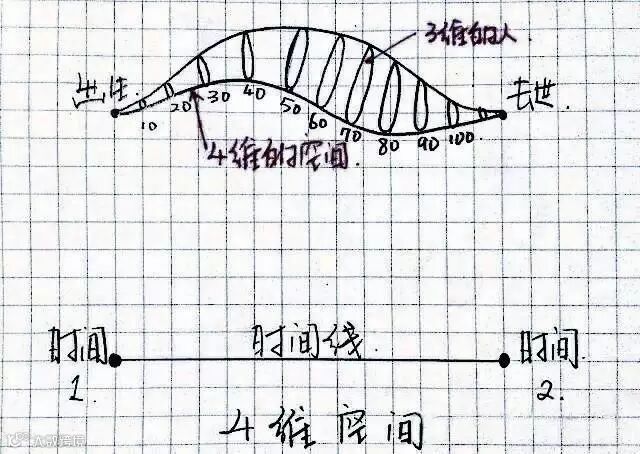 3维的人
出生
去世
10 20 30 40 50 60 70 80 90 100
4维的空间
时间1.
时间线
时间2.
4维空间